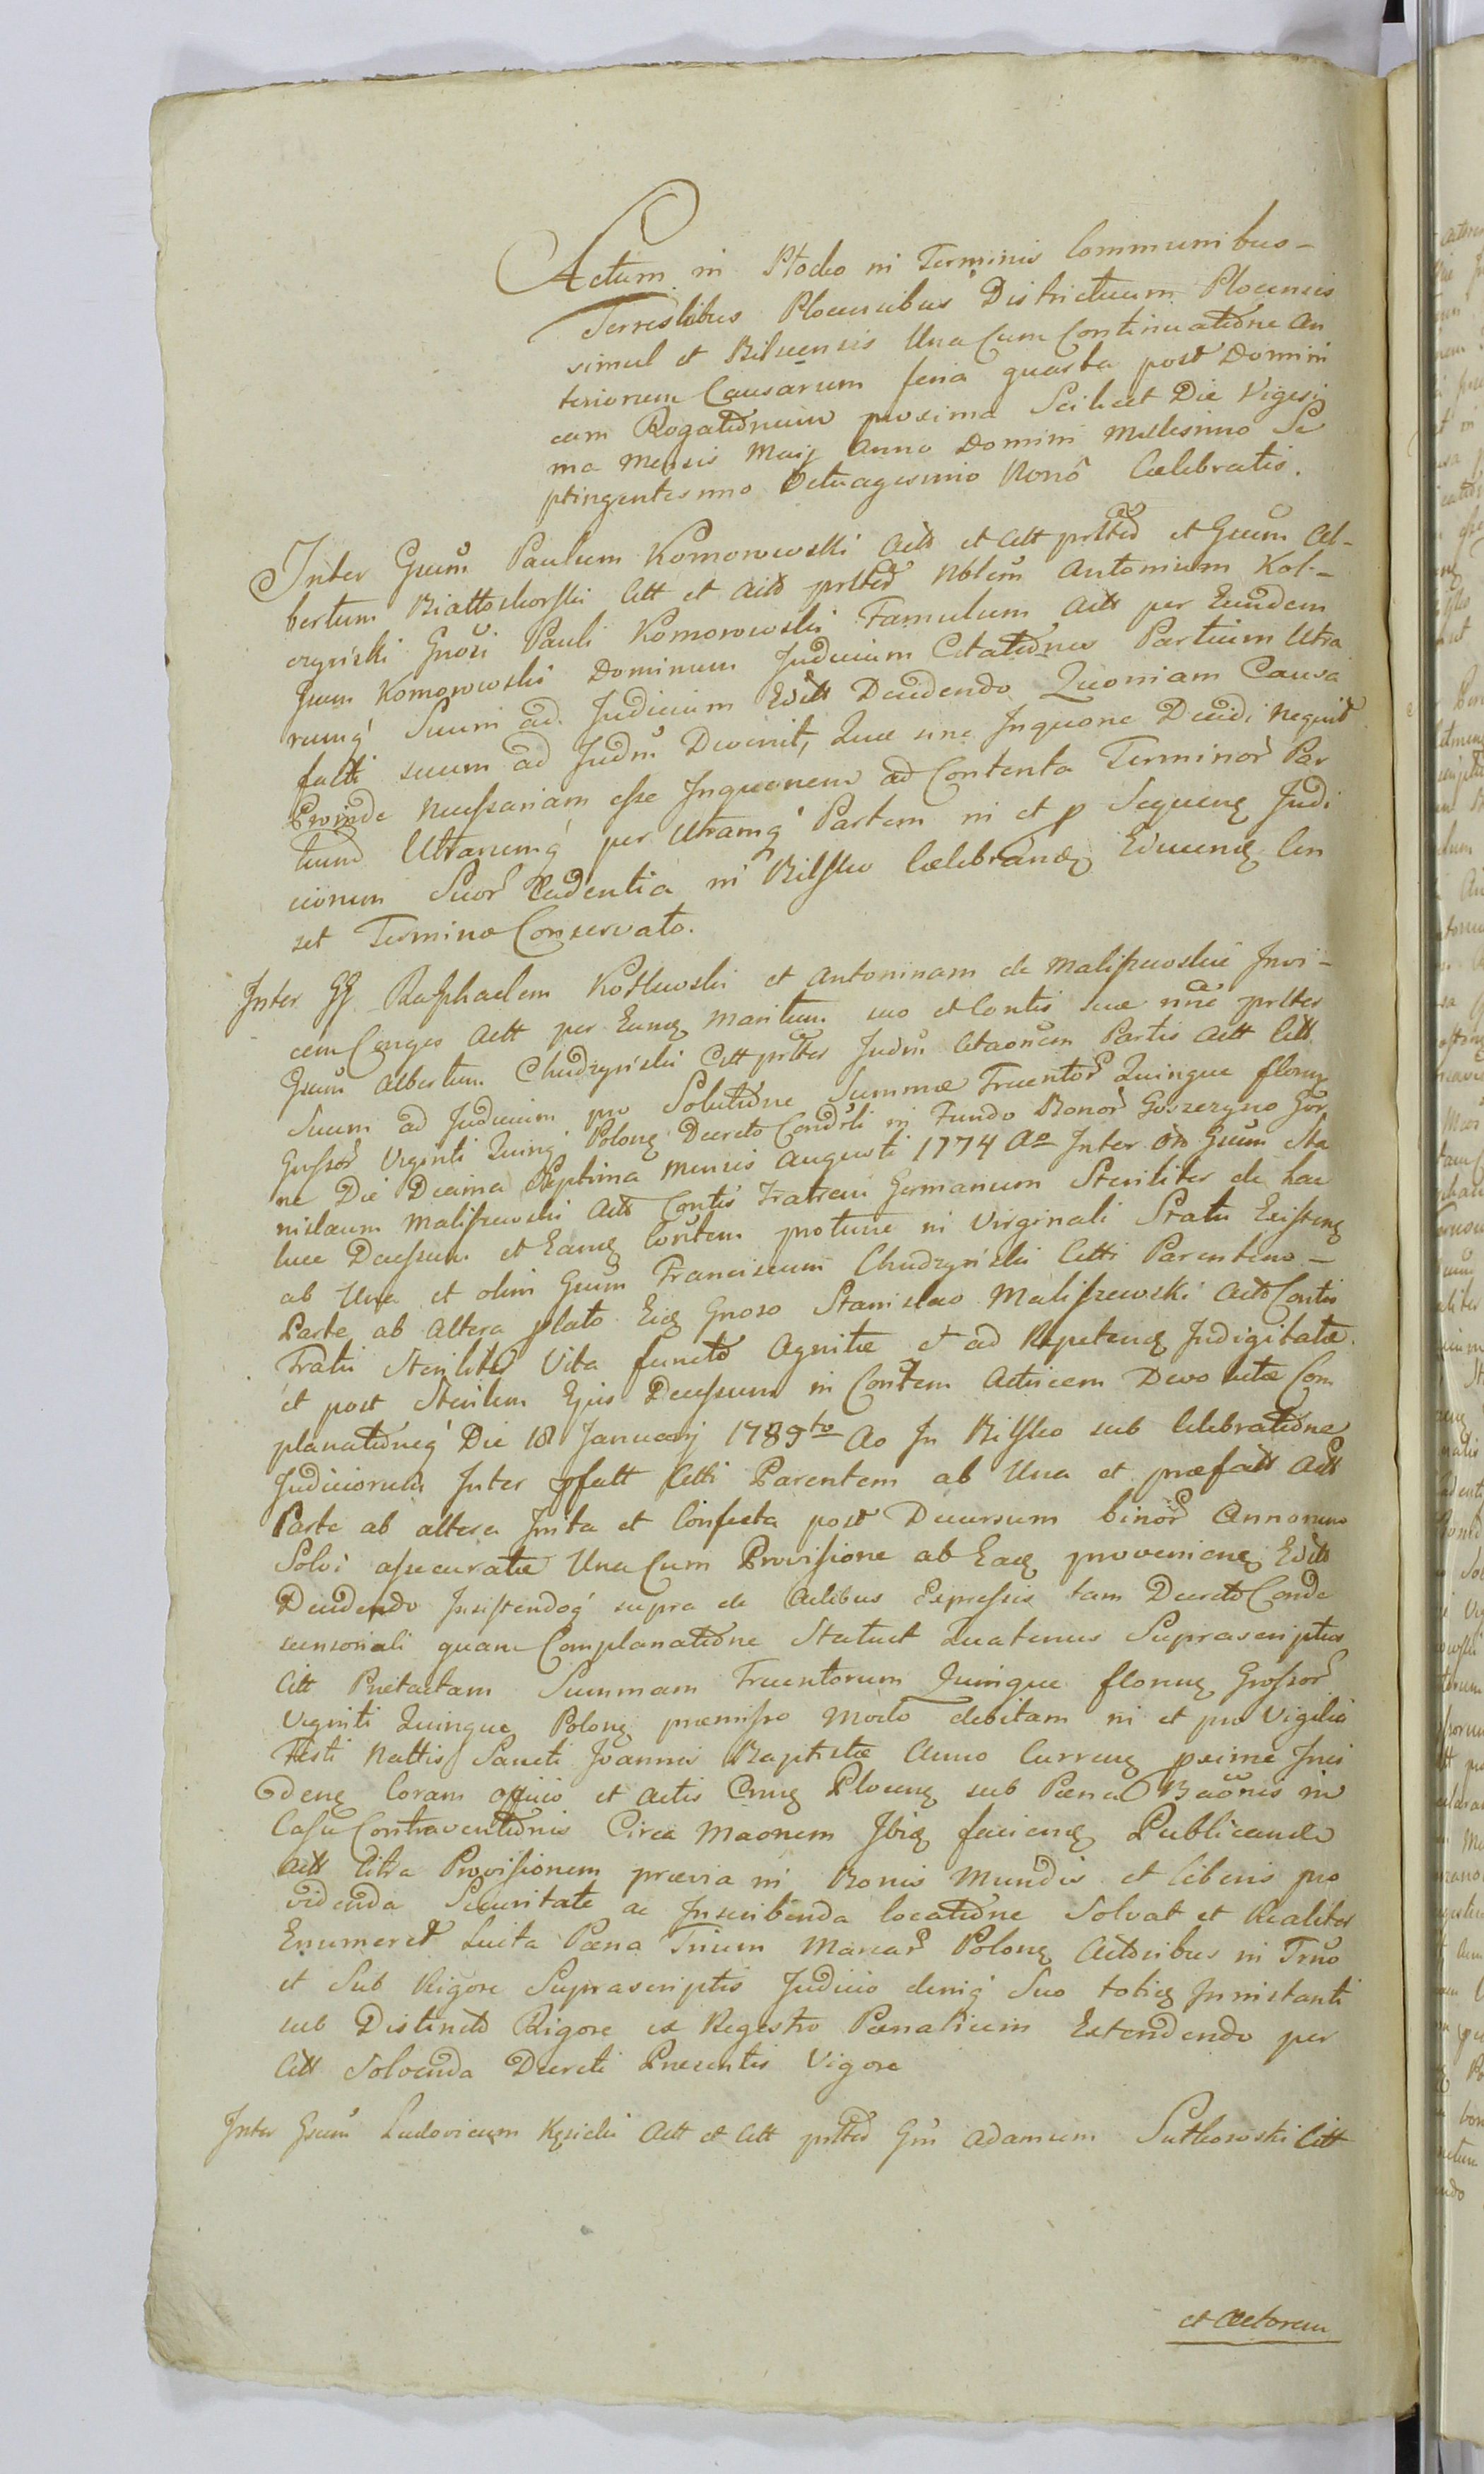 Actum in Plocko in Terminis Communibus-
Terrestribus Plocensibus Districtuum Plocensis
simul et Bilscensis Una Cum Continuatione An
teriorum Causarum feria quarta post Domini
cam Rogationum proxima Scilicet Die Vigesi
ma Mensis Maij Anno Domini Millesimo Se
ptingentesimo Octuagesimo Nono Celebratis.
Inter Gsum Paulum Komorowski Actt et Citt prltter et Gsum Al-
bertum Białłoskorski Citt et Actt prltter Nblem Antonium Kol-
czyński Gnosi Pauli Komorowski Famulum Actt per Eundem
Gsum Komorowski Dominum Judicium Citationes Partium Utra
rumq Suum ad Judicium Editt Decidendo Quoniam Causa
facti suum ad Judm Devenit, Quæ sine Inquone Decidi nequit
Proinde necessariam esse Inquonem ad Contenta Terminor Par
tium Utrarumq per Utramq Partem in et p Sequeng Judi
ciorum Suor Cadentia in Bilsko Celebrandg Educeng Cen
set Termino Conservato.
Inter GG Raphaelem Kozłowski et Antoninam de Maliszewskie Invi-
cem Conges Actt per Eung Maritum suo et Contis suæ nne prltter
Gsum Albertum Chudzyński Citt prltter Judm Citaonem Partis Actt Citt
Suum ad Judicium pro Solutione Summæ Trecentor Quinque floreng
Grossor Viginti Quinq Polong Decreto Condesli in Fundo Bonor Goszczyno Gor
ne Die Decima Septima Mensis Augusti 1774 Ao Inter olim Gsum Sta
nislaum Maliszewski Actt Contis Fratrem Germanum Steriliter de hac
luce Decessum et Eang Contem protunc in Virginali Statu Existeng
ab Una et olim Gsum Franciscum Chudzyński Citti Parentem-
Parte ab altera plato Eid Gnoso Stanislao Maliszewski Actt Contis
Fratri Steriliter Vita functo Agnitæ et ad Repeteng Indigitatæ
et post Sterilem Ejus Decessum in Contem Actricem Devolutæ Com
planationeq Die 18 Januarij 1785to Ao In Bilsko sub Celebratione
Judiciorum Inter pfatt Citti Parentem ab Una et præfatt Actt
Parte ab altera Inita et Confecta post Decursum binor Annorum
Solvi assecuratæ Una Cum Provisione ab Eadg provenieng Editt
Decidendo Insistendoq supra de Actibus Expressis tam Decreto Conde
scensoriali quam Complanatione Statuit Quatenus Suprascriptus
Citt Pnetactam Summam Trecentorum Quinque floreng Grossor
Viginti Quinque Polong præmisso Modo debitam in et pro Vigilia
Festi Nattis Sancti Joannis Baptistæ Anno Curreng proxime Inci
deng Coram officio et Actis Cnng Ploceng sub Pæna Baonis in
Casu Contraventionis Circa Maonem Ibig facieng Publicandæ
Actt Citra Provisionem prævia in Bonis Mundis et liberis pro
videnda Securitate ac Inscribenda locatione Solvat et Realiter
Enumeret Luita Pæna Trium Marcar Polong Actoribus in Trno
et Sub Rigore Suprascriptis Judicio deniq Suo totieg Innistanti
sub Distincto Rigore ex Regestro Pænalium Extendendo per
Citt Solvenda Decreti Præsentis Vigore
Inter Gsum Ludovicum Kęsicki Actt et Citt prltter Gm Adamum Sutkowski Citt
et Actorem